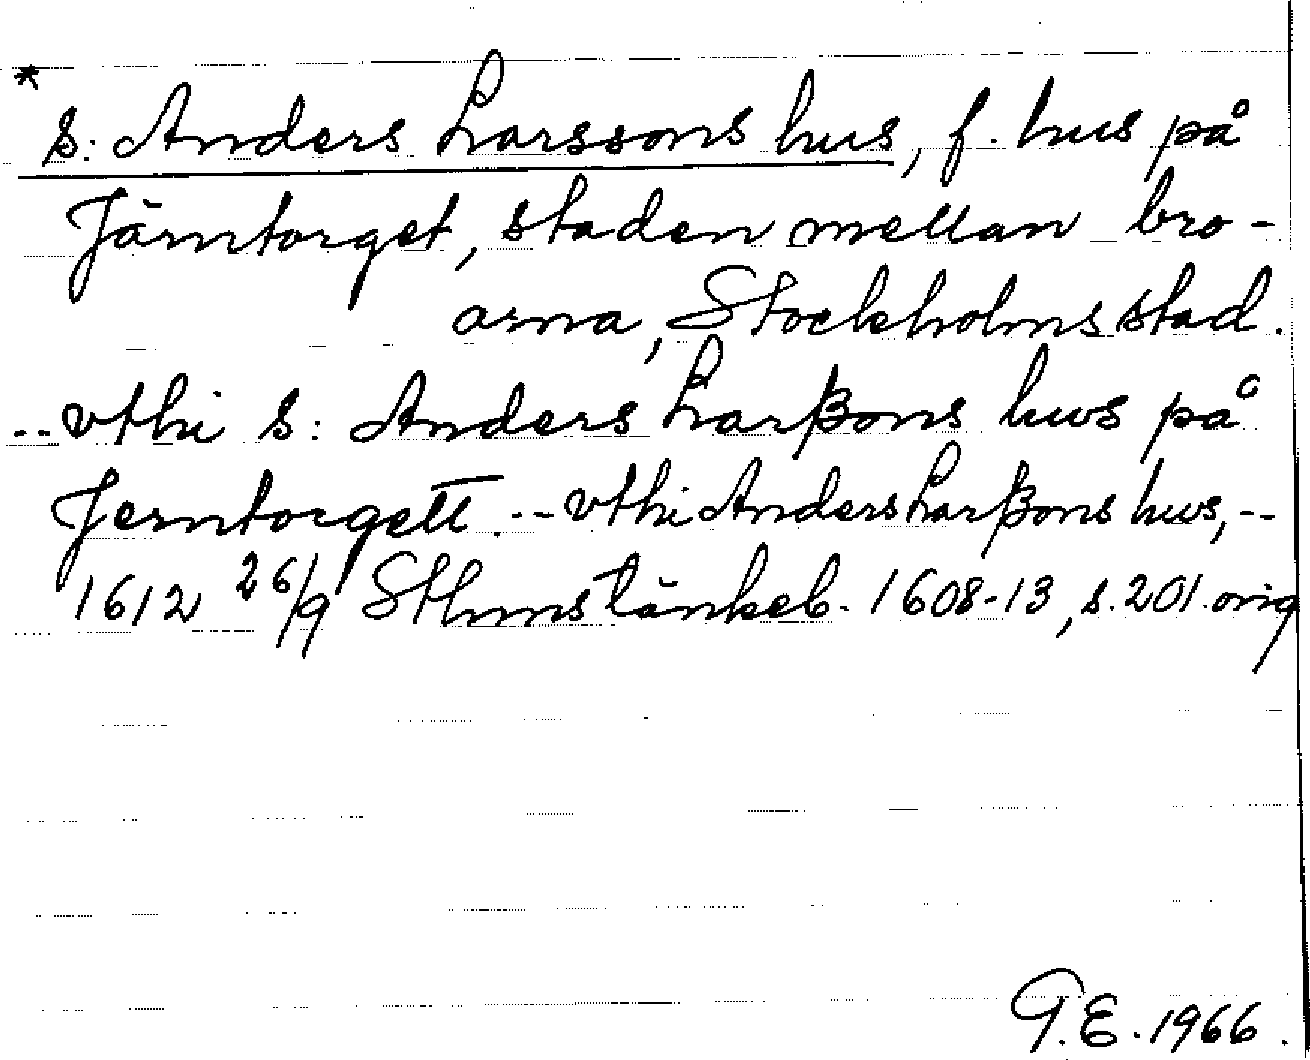 *
S: Anders Larssons hus, f. hus på
Järntorget, staden mellan bro-
arna, Stockholms stad.
--vthi S: Anders Larßons hws på
Jerntorgett. -- vthi Anders Larßons hws, --
1612 26/9 Sthms tänkeb. 1608-13, s. 201. orig
G.E. 1966.